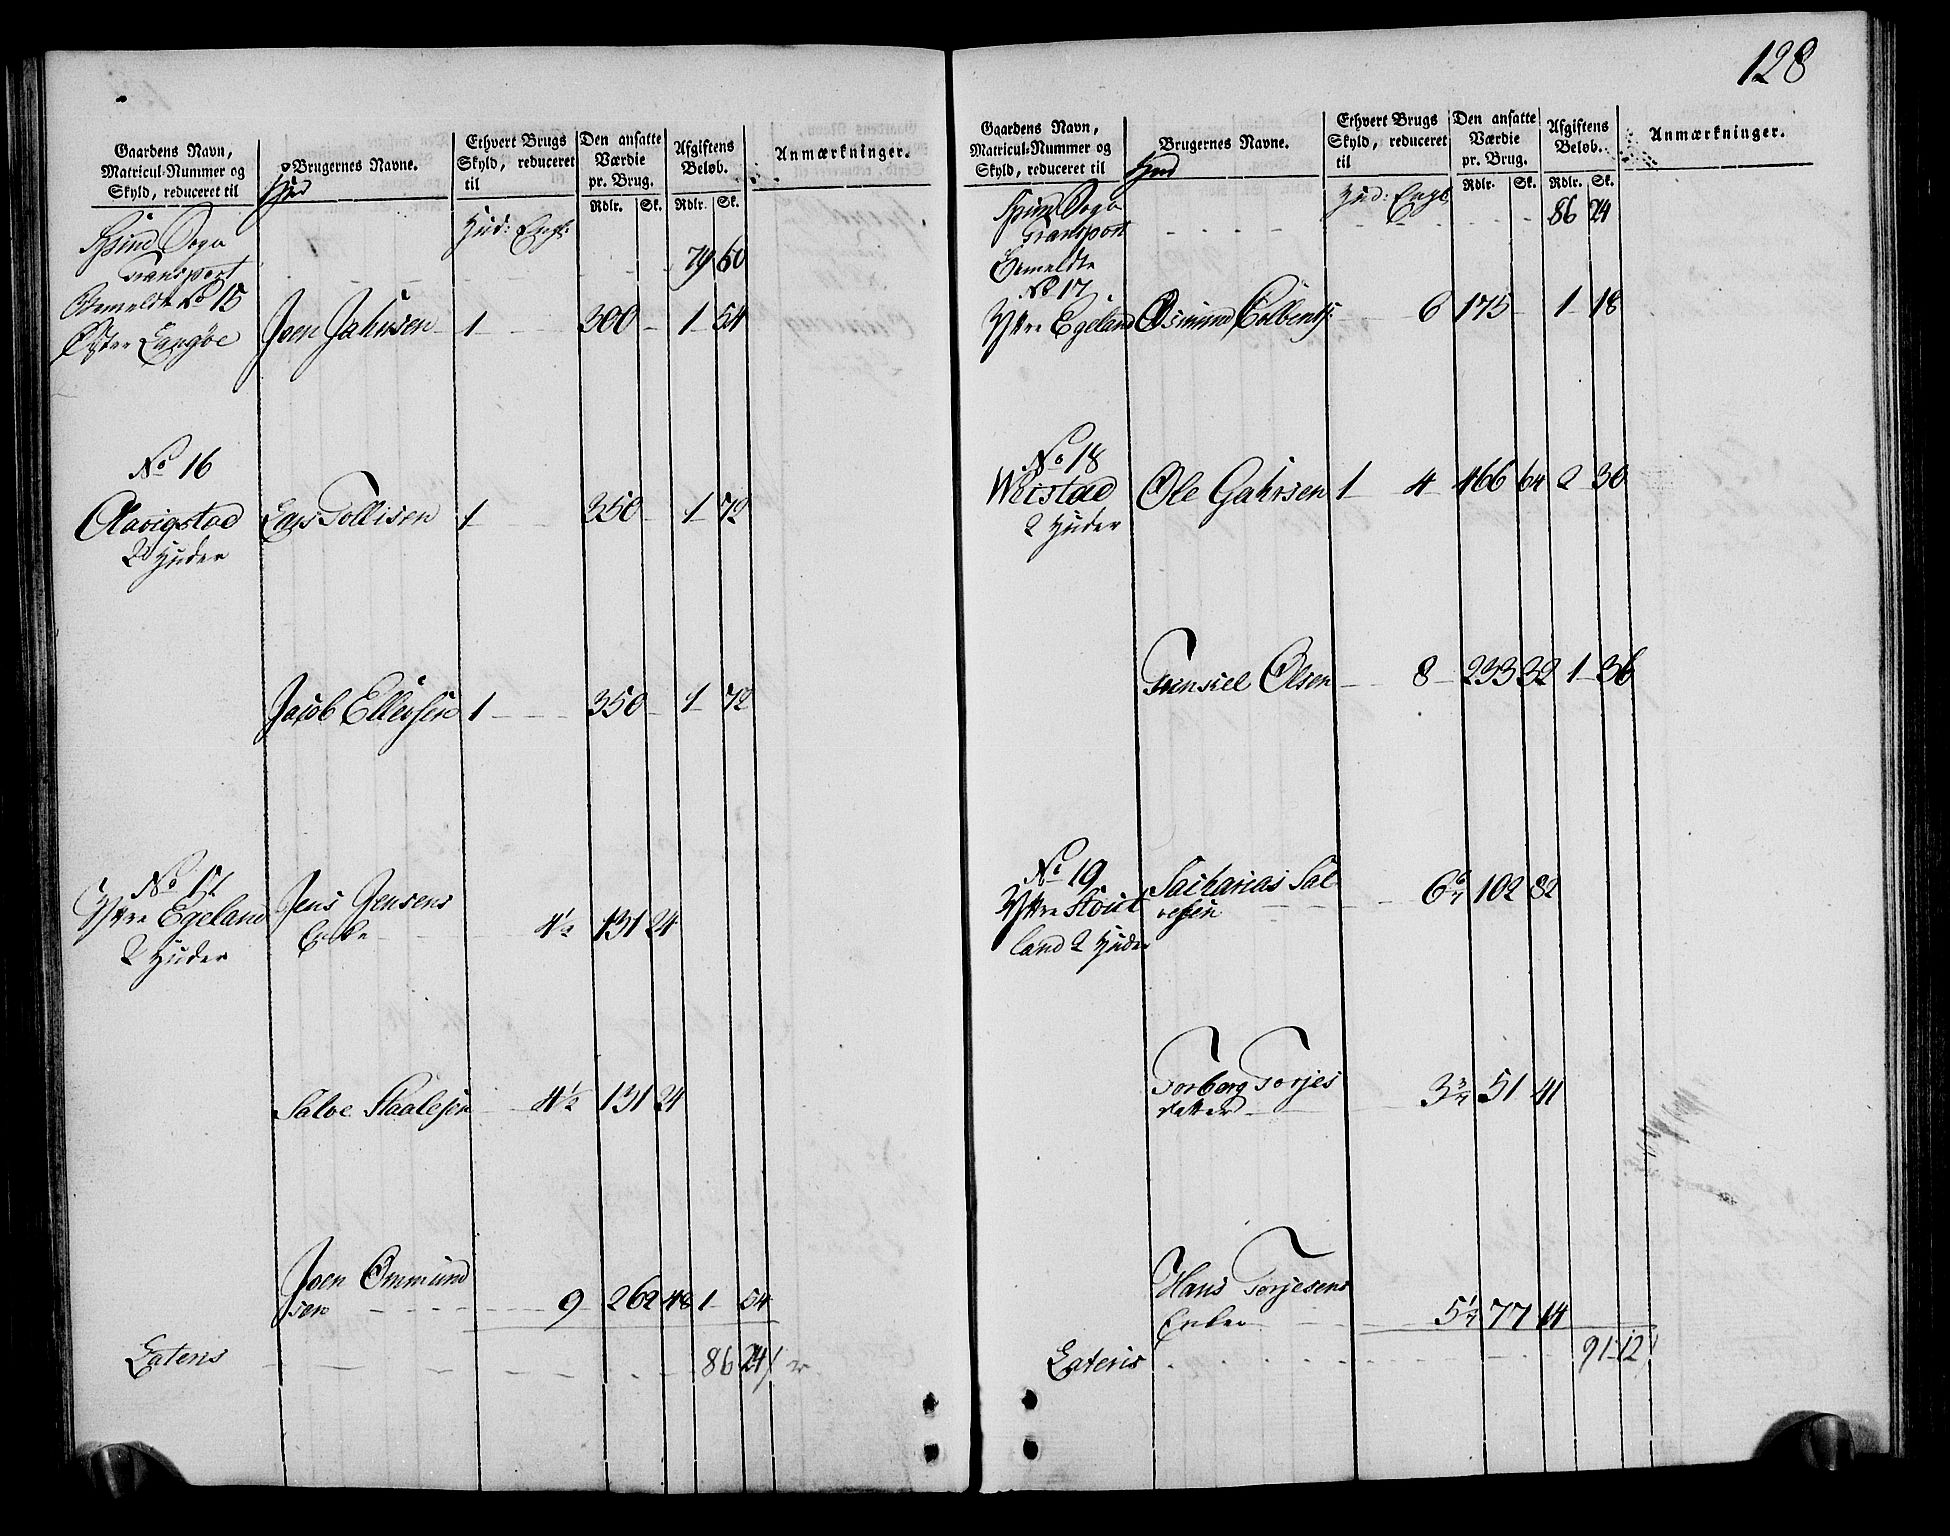 Gaardens Navn,
Matricul-Nummer og
Skyld, reduceret til
Hud
Brugernes Navne.
Ethvert Brugs
Skyld, reduceret
til
Den ansatte
Værdie
pr. Brug.
Rdlr. Sk.
Afgiftens
Beløb.
Rdlr. Sk.
Anmærkninger.
Spind Sogn
Hud: Eng:
Transport 79 60
Bemeldte No 15
Øster Langøe Joen Jahnsen 1 300 1 54
No 16
Aavigstad Lars Tollisen 1 350 1 72
2 Huder
Jacob Ellevsen 1 350 1 72
No 17
Yttre Egeland Jens Jensens
2 Huder Enke 4½ 131 24
Salve Staalesen 4½ 131 24
Joen Ommund
sen 9 262 48 1 54
Lateris 86 24
128
Gaardens Navn,
Matricul-Nummer og
Skyld, reduceret til
Hud
Brugernes Navne.
Ethvert Brugs
Skyld, reduceret
til
Den ansatte
Værdie
pr. Brug.
Rdlr. Sk.
Afgiftens
Beløb.
Rdlr. Sk.
Anmærkninger.
Spind Sogn
Hud: Eng:
Transport 86 24
Bemeldte
No 17
Yttre Egeland Osmund Colbents: 6 175 1 18
No 18
Weistad Ole Gahrsen 1 4 466 64 2 30
2 Huder
Trenkel Olsen 8 233 32 1 36
No 19
Yttre Sciut Sacharias Sal
land 2 Huder vesen 6 6/7 102 82
Torborg Torjes
datter 3 3/7 51 41
Hans Torjesens
Enke 5 1/7 77 14
Lateris 91 12